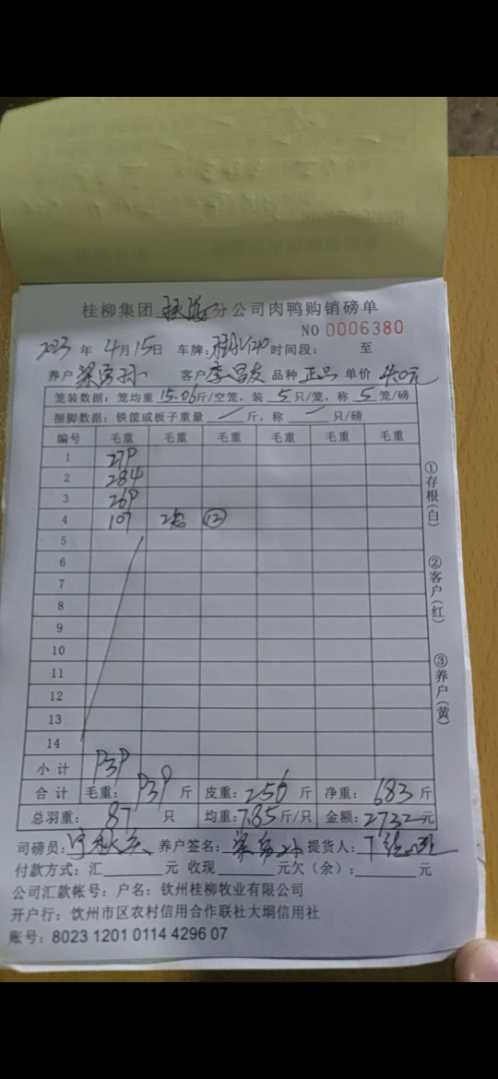 桂柳集团 分公司肉鸭购销磅单
NO 0006380
2023 年 4 月 15 日 车牌: 时间段: 至
养户 客户 李昌 品种 正品 单价 4.0元
笼装数据:笼均重 15.06 斤/空笼,装 5 只/笼,称 5 笼/磅
捆脚数据:铁筐或板子重量 斤,称 只/磅
编号 毛重 毛重 毛重 毛重 毛重 毛重
1 279
2 284
3 269
4 107 2笼 ⑫
5
6
7
8
9
10
11
12
13
14
小计 939
合计 毛重: 939 斤 皮重: 256 斤 净重: 683 斤
总羽重: 87 只 均重: 7.85 斤/只 金额: 2732 元
司磅员: 养户签名: 提货人:
付款方式:汇 元 收现 元欠(余): 元
公司汇款帐号:户名:钦州桂柳牧业有限公司
开户行:钦州市区农村信用合作联社大垌信用社
账号:8023 1201 0114 4296 07
①存根(白)
②客户(红)
③养户(黄)